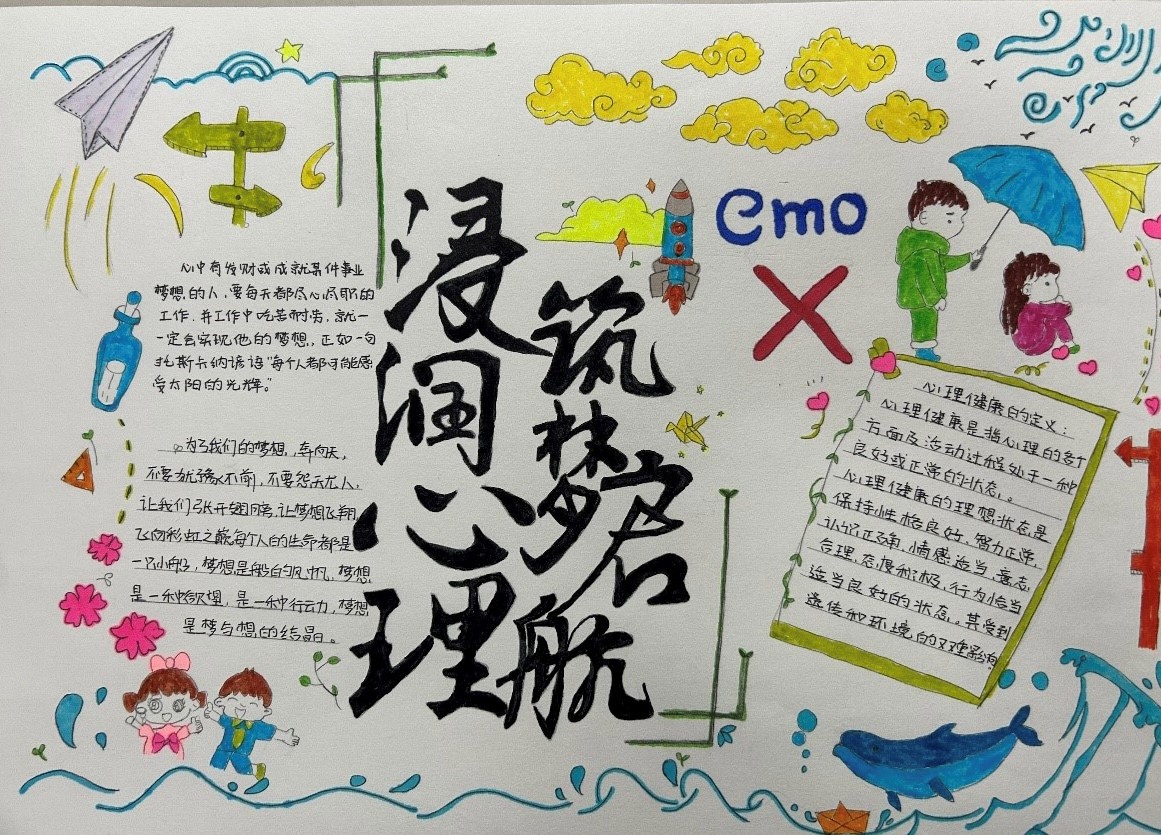 浸润心理
筑梦启航
emo
心中有发财或成就某件事业
梦想的人，要每天都尽心尽职的
工作，并工作中吃苦耐劳，就一
定会实现他的梦想，正如一句
托斯卡纳谚语“每个人都可能感
受太阳的光辉。”
为了我们的梦想，奔向天，
不要犹豫不前，不要怨天尤人，
让我们张开翅膀，让梦想飞翔，
飞向彩虹之巅，每个人的生命都是
一只小船，梦想是船的风帆，梦想
是一种欲望，是一种行动力，梦想
是梦与想的结晶。
心理健康的定义：
心理健康是指心理的各个
方面及活动过程处于一种
良好或正常的状态。
心理健康的理想状态是
保持性格良好、智力正常、
认识正确、情感适当、意志
合理、态度积极、行为恰当
适当良好的状态。其受到
遗传和环境的双重影响